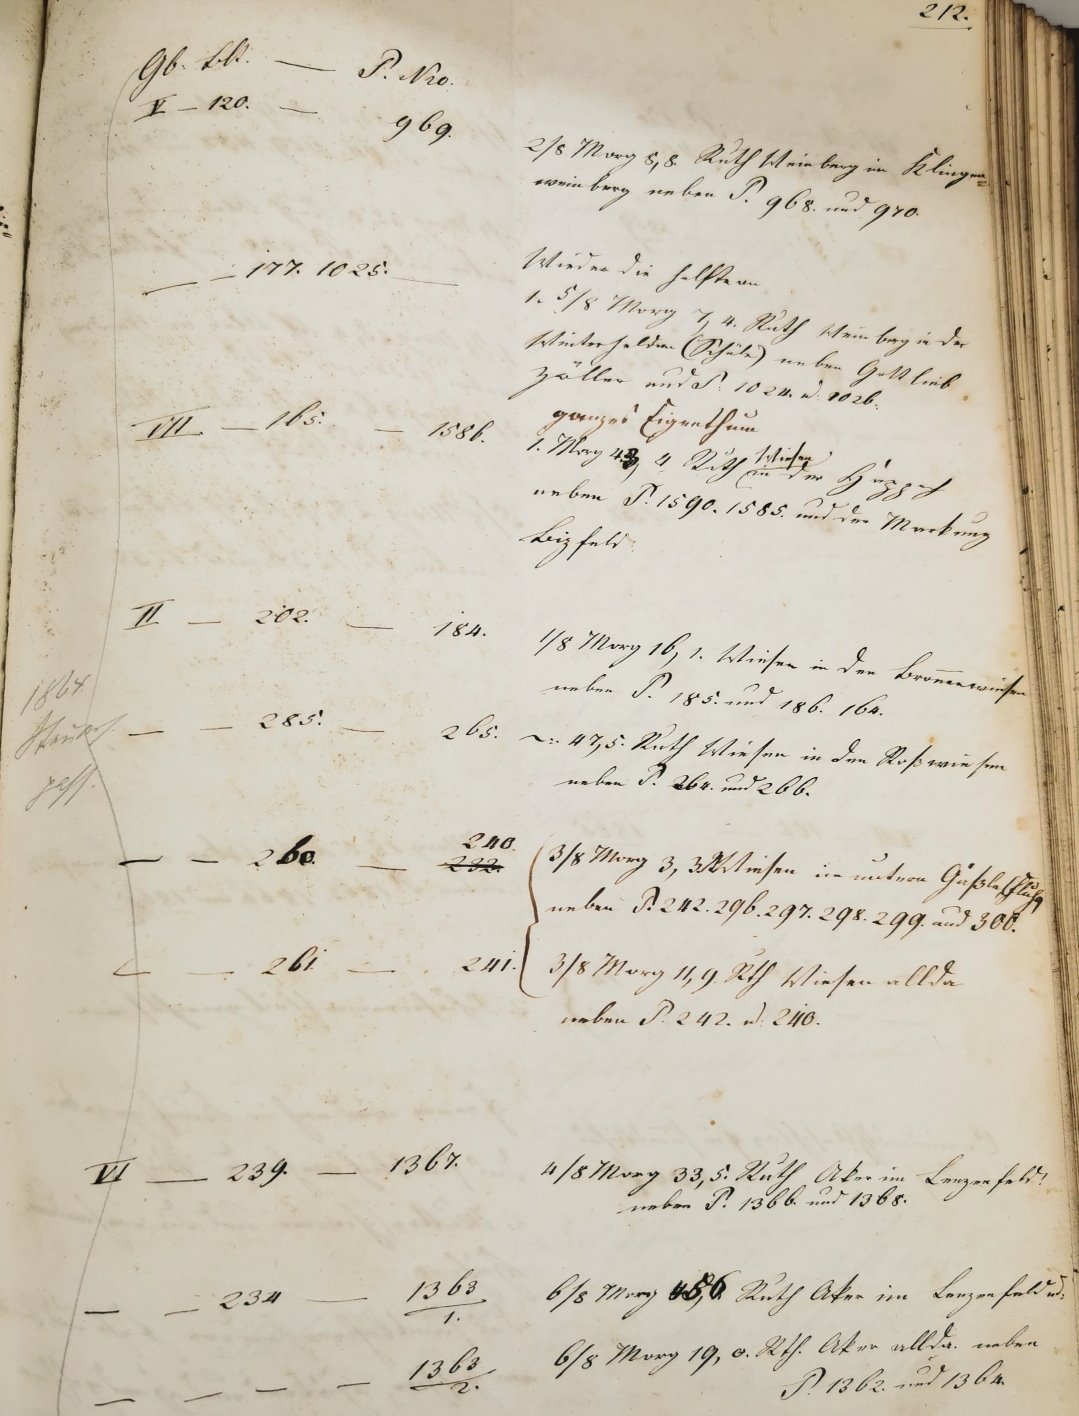 212.
Gb. Bl. — P. Nro.
V — 120. — 969.
2/8 Morg 8,8 Ruth Weinberg im Klingen=
weinberg neben P. 968. und 970.
— — 177. 1025. —
Wieder die helfte an
1. 5/8 Morg 7, 4. Ruth Weinberg in der
Winterhelden (Schüle) neben Gottlieb
Zöller und P. 1024. u. 1026.
ganzes Eigenthum
VII — 165. — 1586.
1. Morg 43, 4 Ruth Wiesen in der
neben P. 1590. 1585. und der Markung
Bizfeld
II — 202. — 184.
1/8 Morg 16, 1. Wiesen in den Bronnenwiesen
neben P. 185. und 186. 164.
1864.
gess.
— — 285. — 265.
—: 47,5. Ruth Wiesen in den Roßwiesen
neben P. 264. und 266.
— — 260 — 240.
232.
3/8 Morg 3, 3 R Wiesen im untern
neben P. 242. 296. 297. 298. 299. und 300.
— — 261. — 241.
3/8 Morg 11, 9. Rth Wiesen allda
neben P. 242. u. 240.
VI — 239. — 1367.
4/8 Morg 33, 5. Ruth Aker im Lenzenfeld
neben P. 1366. und 1368.
— — 234 — 1363/1.
6/8 Morg 48,6 Ruth Aker im Lenzenfeld und
— — — — 1363/2.
6/8 Morg 19, 0. Rth. Aker allda. neben
P. 1362. und 1364.